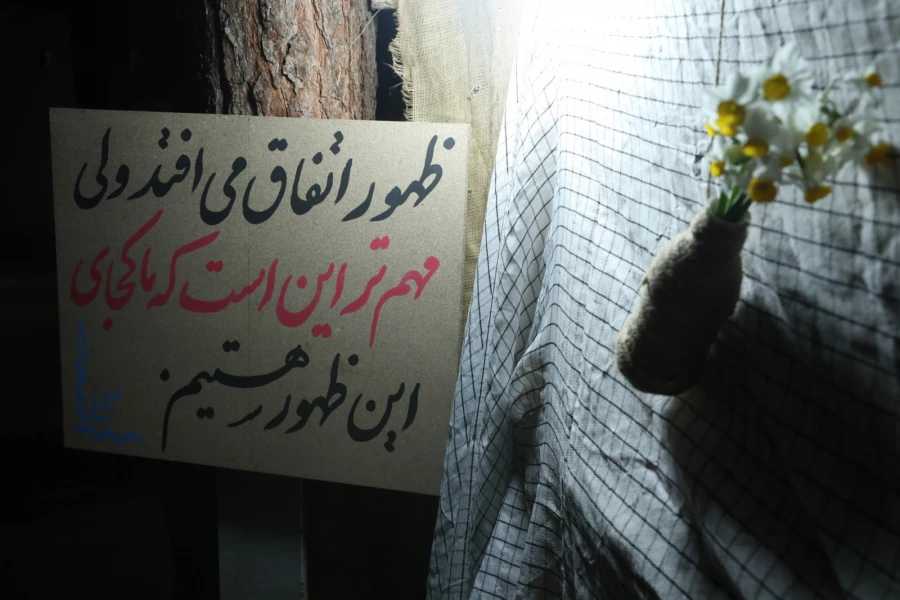 ظهور اتفاق می افتد ولی
مهم تر این است که ما کجای
این ظهور هستیم.